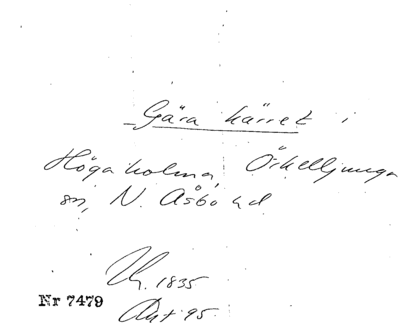 Gära kärret i
Högaholma, Örkelljunga
sn, N. Åsbo hd
1835
Nr 7479
95